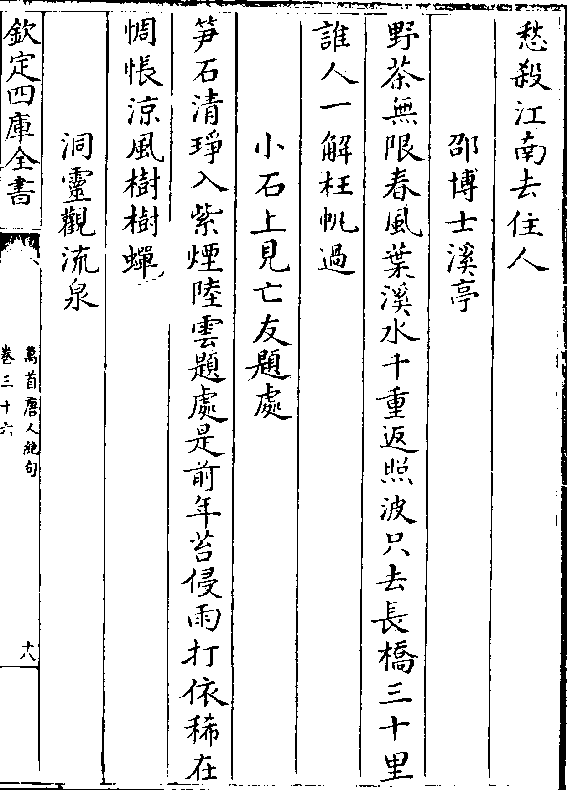 愁殺江南去住人
邵博士溪亭
野茶無限春風葉溪水千重返照波只去長橋三十里
誰人一解枉帆過
小石上見亡友題處
笋石清琤入紫煙陸雲題處是前年苔侵雨打依稀在
惆悵涼風樹樹蟬
洞靈觀流泉
欽定四庫全書
萬首唐人絶句
卷三十六
十八